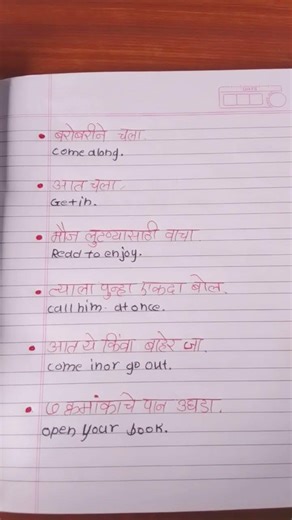 बरोबरीने चला.
come along.
आत चला.
Get in.
मौज लुटण्यासाठी वाचा.
Read to enjoy.
त्याला पुन्हा एकदा बोल.
call him at once.
आत ये किंवा बाहेर जा.
come in or go out.
७ क्रमांकाचे पान उघडा.
open your book.